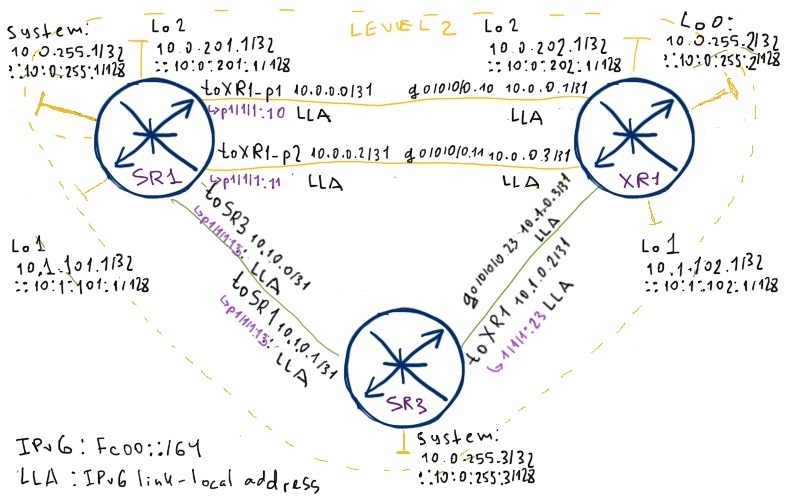 LEVEL 2
System:
10.0.255.1/32
::10:0:255:1/128
Lo2
10.0.201.1/32
::10:0:201:1/128
Lo2
10.0.202.1/32
::10:0:202:1/128
Lo0:
10.0.255.2/32
::10:0:255:2/128
toXR1-p1 10.0.0.0/31
↳p1/1/1:10 LLA
g0/0/0/0.10 10.0.0.1/31
LLA
toXR1-p2 10.0.0.2/31
↳p1/1/1:11 LLA
g0/0/0/0.11 10.0.0.3/31
LLA
SR1
XR1
Lo1
10.1.101.1/32
::10:1:101:1/128
Lo1
10.1.102.1/32
::10:1:102:1/128
toSR3 10.10.0/31
↳p1/1/1:13: LLA
toSR1 10.10.1/31
↳p1/1/1:13: LLA
g0/0/0/0.23 10.1.0.3/31
LLA
toXR1 10.1.0.2/31
↳1/1/1:23 LLA
SR3
System:
10.0.255.3/32
::10:0:255:3/128
IPv6: Fc00::/64
LLA: IPv6 link-local address